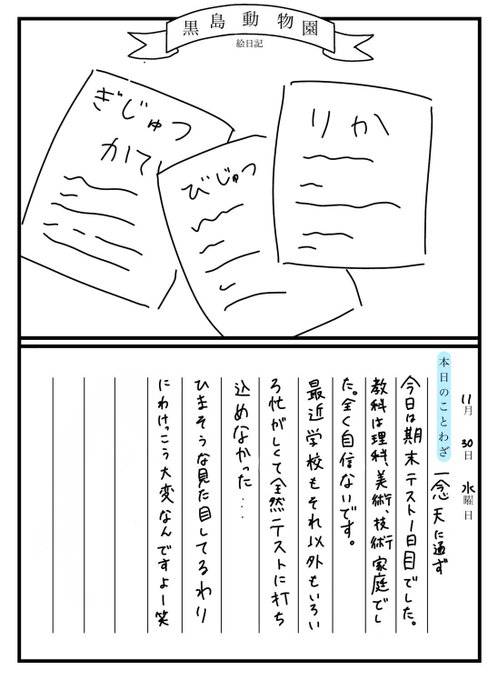 黒島動物園
絵日記
ぎじゅつ
かてい
びじゅつ
りか
11月30日水曜日
本日のことわざ 一念天に通ず
今日は期末テスト1日目でした。
教科は理科、美術、技術家庭でし
た。全く自信ないです。
最近学校もそれ以外もいろい
ろ忙がしくて全然テストに打ち
込めなかった...
ひまそうな見た目してるわり
にわけっこう大変なんですよー笑